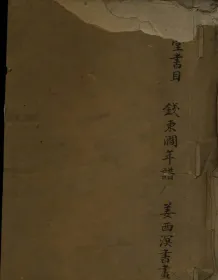 堂書目 錢東澗年譜 姜西溟書